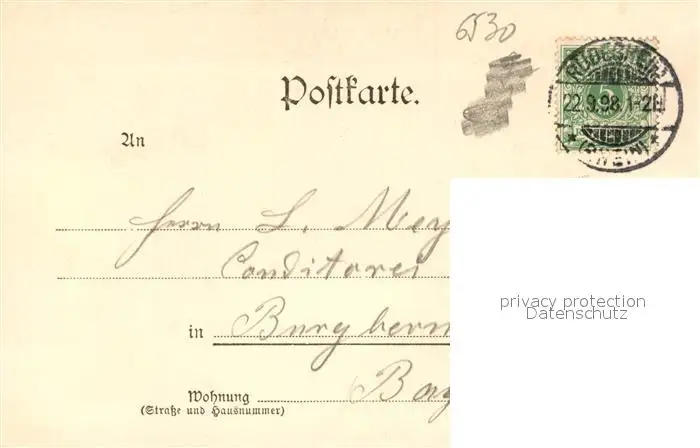 6530
RÜDESHEIM
5
22.9.98. 1-2N
* (RHEIN) *
Postkarte.
An
Herrn L. Mey
Conditorei
in Burgbern
Wohnung Bay
(Straße und Hausnummer)
privacy protection
Datenschutz